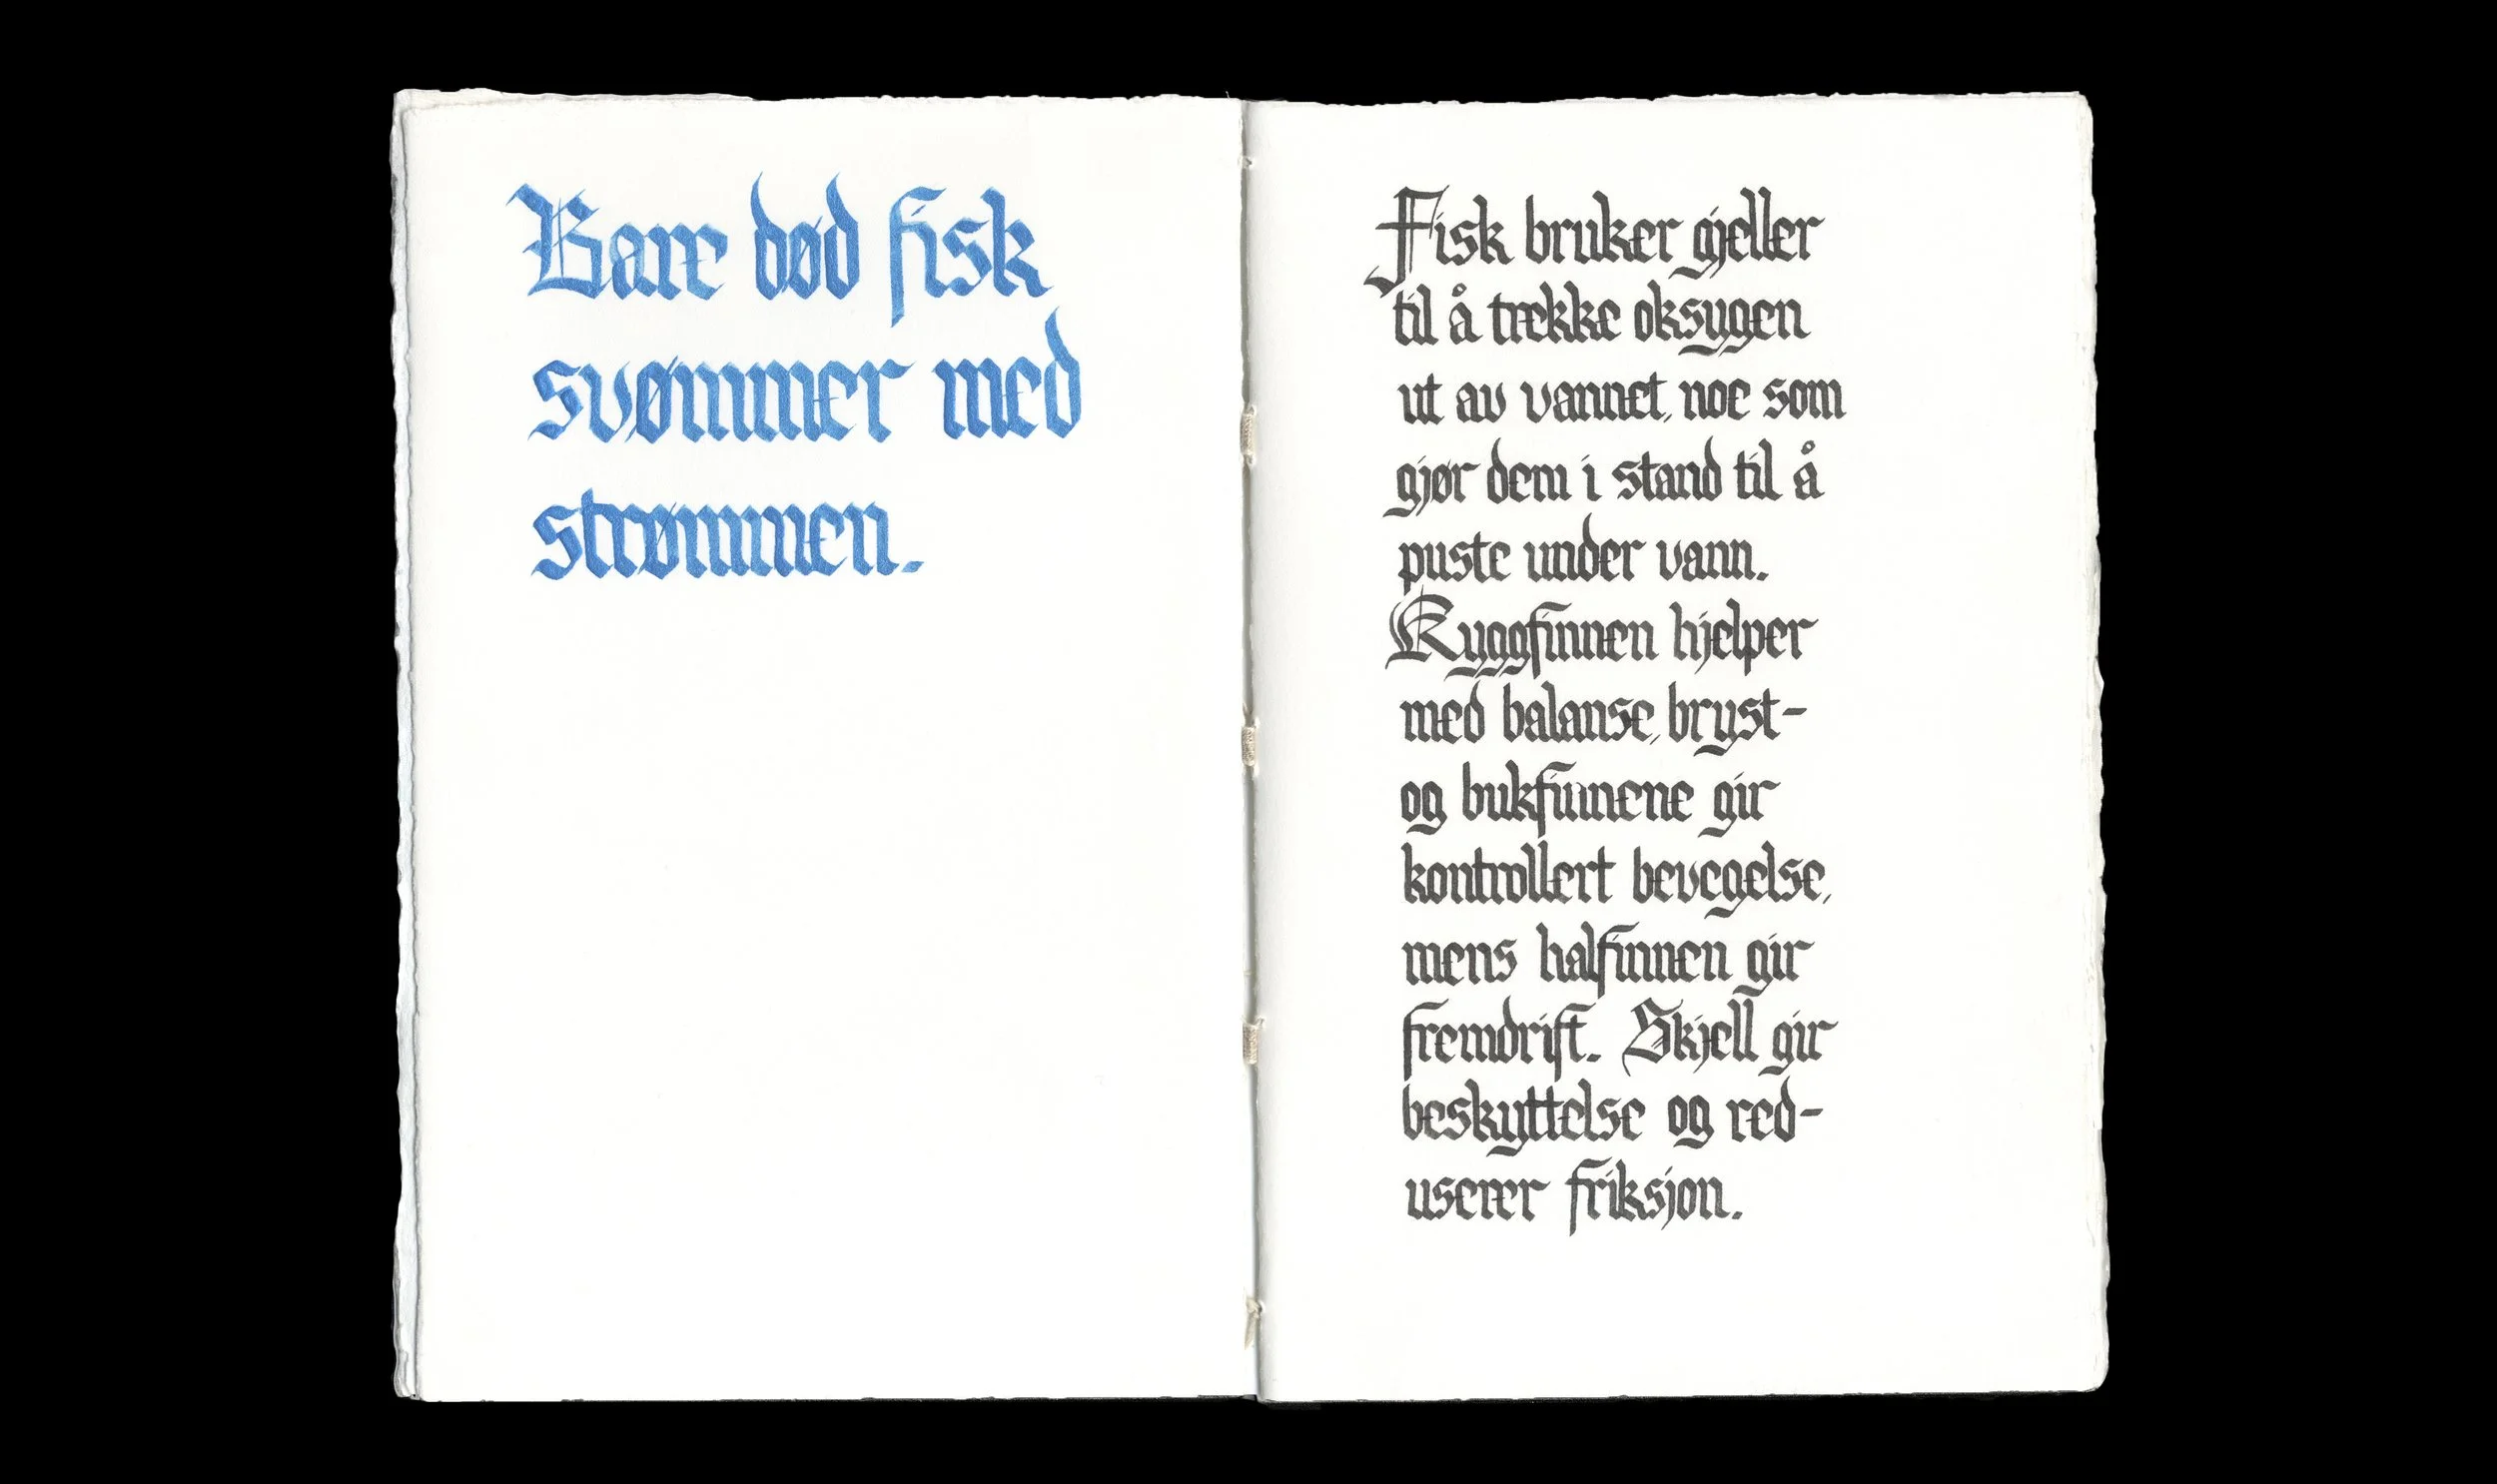 Bare død fisk
svømmer med
strømmen.
Fisk bruker gjeller
til å trekke oksygen
ut av vannet, noe som
gjør dem i stand til å
puste under vann.
Ryggfinnen hjelper
med balanse, bryst-
og bukfinnene gir
kontrollert bevegelse,
mens halfinnen gir
fremdrift. Skjell gir
beskyttelse og red-
userer friksjon.